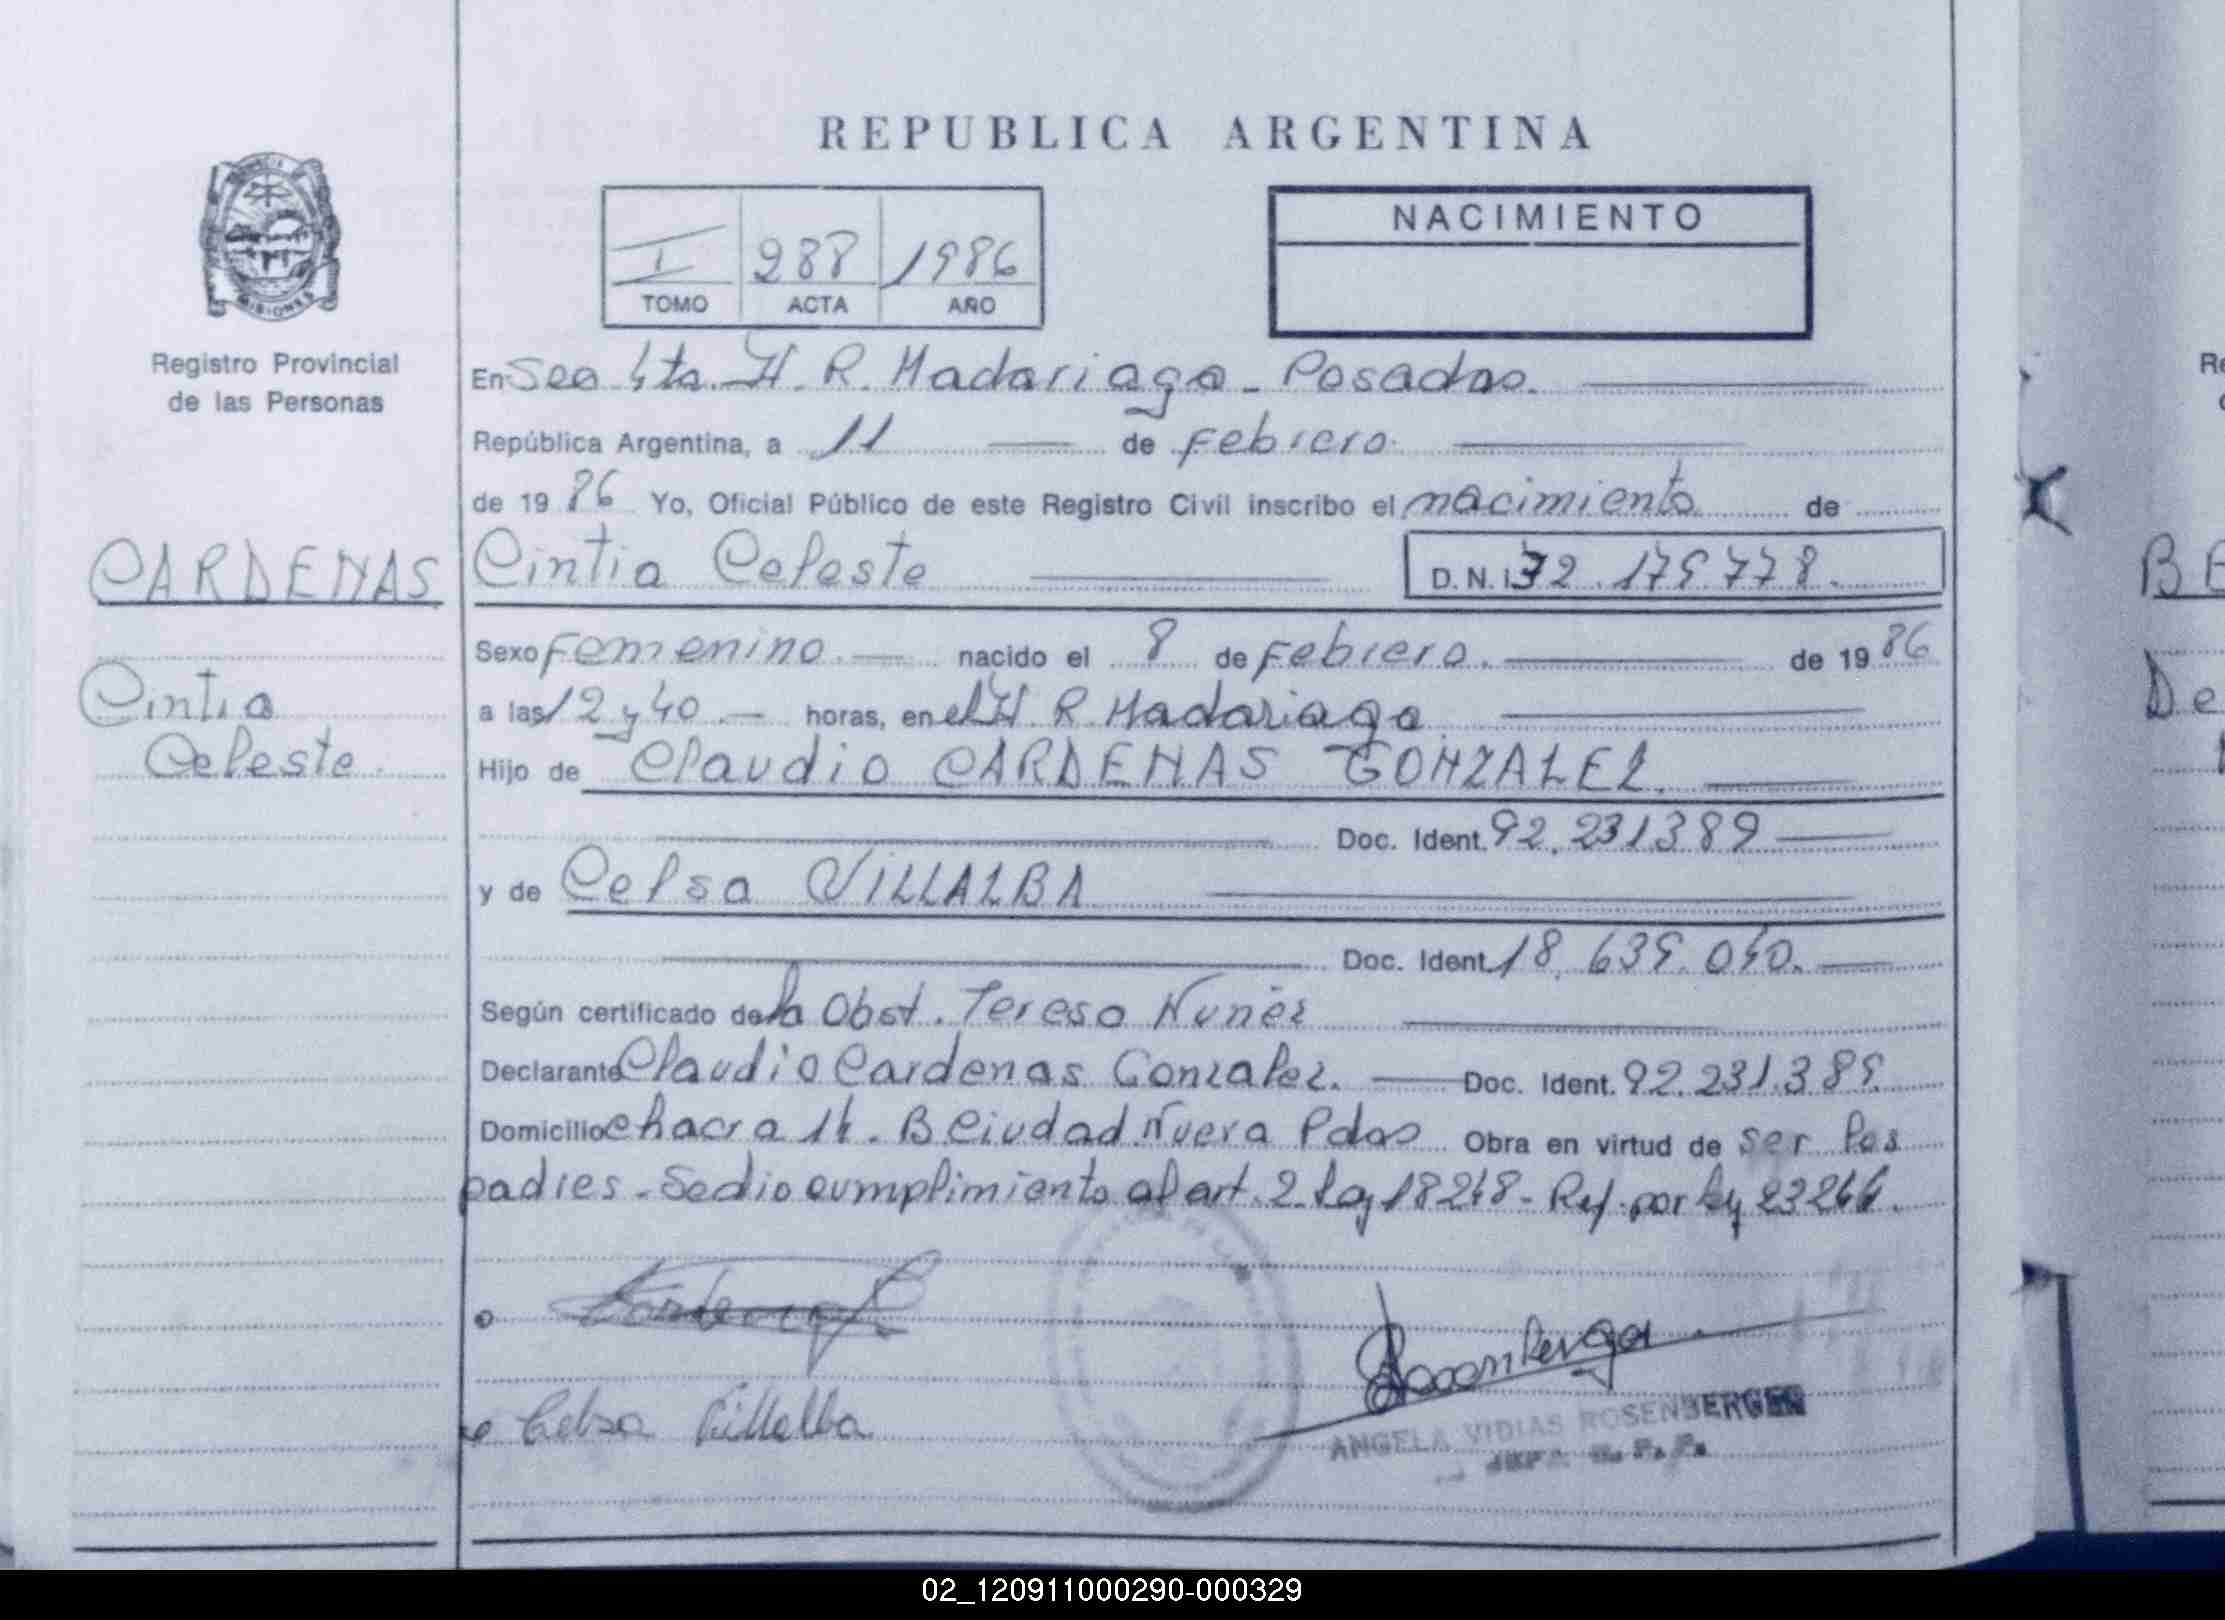 REPUBLICA ARGENTINA
I 288 1986
TOMO ACTA AÑO
NACIMIENTO
MISIONES
Registro Provincial
de las Personas
CARDENAS
Cintia
Celeste
En Sec 4ta. H. R. Madariaga - Posadas.
República Argentina, a 11 de Febrero
de 1986 Yo, Oficial Público de este Registro Civil inscribo el nacimiento de
Cintia Celeste D.N.I. 32.175.778.
Sexo Femenino. nacido el 8 de Febrero. de 1986
a las 12 y 40. horas, en el H. R. Madariaga
Hijo de Claudio CARDENAS GONZALEZ.
Doc. Ident. 92.231389
y de Celsa VILLALBA
Doc. Ident. 18.639.040.
Según certificado de la Obst. Teresa Nuñez
Declarante Claudio Cardenas Gonzalez. Doc. Ident. 92.231.389.
Domicilio chacra 14. B Ciudad Nueva Pdas Obra en virtud de ser los
padres. Se dio cumplimiento al art. 2 Ley 18248 - Ref. por ley 23264.
Celsa Villalba
Rosenberger
ANGELA VIDIAS ROSENBERGER
02_120911000290-000329